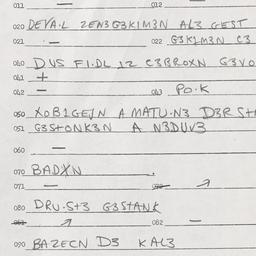 011 — 012 —
020 DEVA·L ZEN3G3K1M3N AL3 GEST
021 — 022 G3K1M3N C3
060 DUS FI·DL 12 C3BROXN G3VO
061 +
062 — 063 PO·K
050 XOB1GEJN A MATU·N3 D3R ST
051 G3STONK3N A N3DUV3
060 —
070 BADXN
071 — 072 ↗
080 DRU·ST3 G3STANK
081 ↗ 082 —
090 BAZECN D3 KAL3